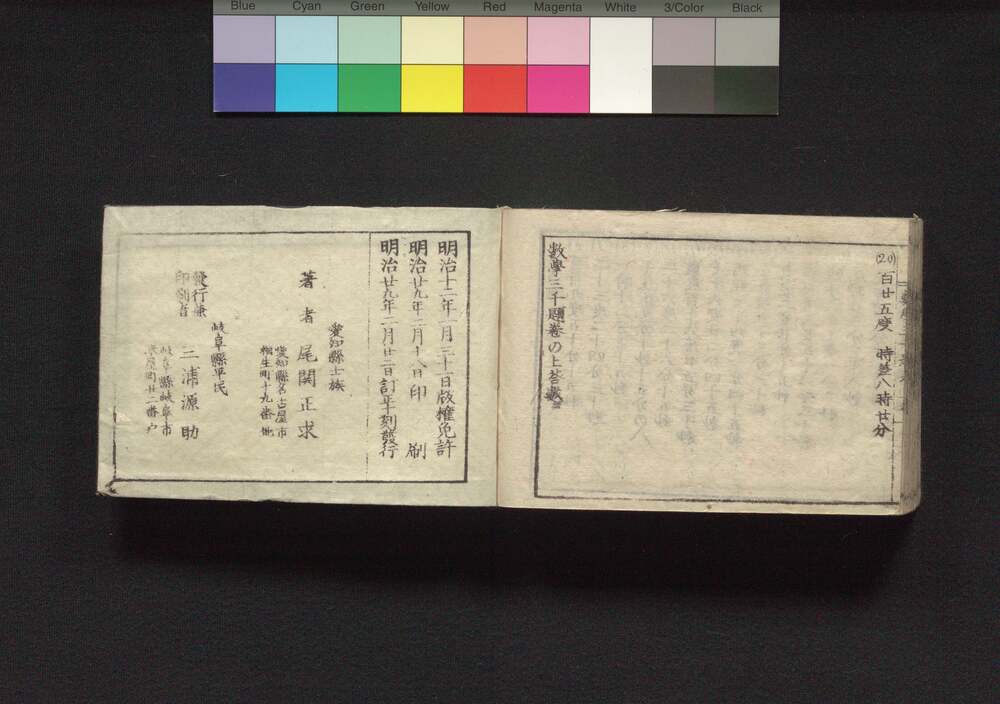 Blue Cyan Green Yellow Red Magenta White 3/Color Black
(20) 百廿五度 時差八時廿分
數學三千題卷の上答數
明治十二年 月三十一日版權免許
明治廿九年二月十八日印刷
明治廿九年二月廿二日訂 刻發行
愛知縣士族
著者 尾関正求
愛知縣名古屋市
相生町十九番地
發行兼
印刷者
岐阜縣平民
三浦源助
岐阜縣岐阜市
屋町廿二番戸